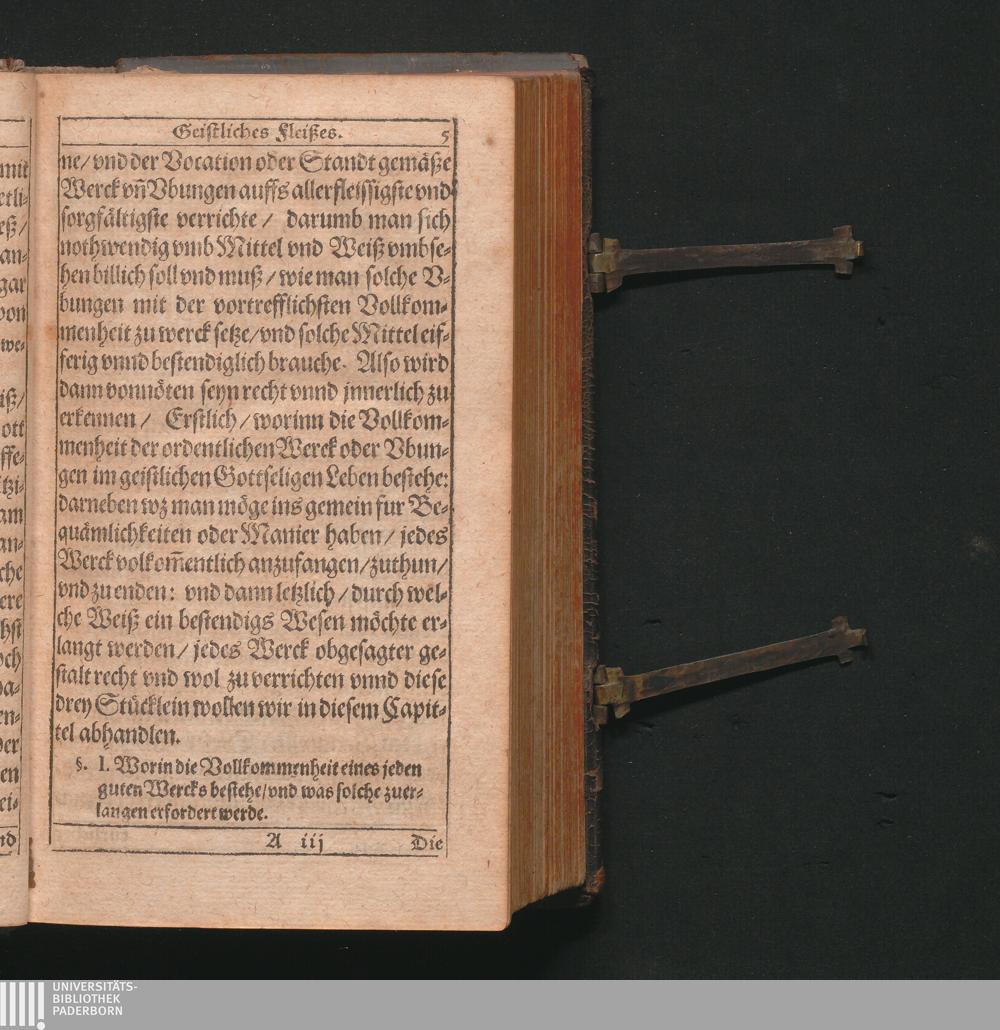 Geistliches Fleißes. 5
ne/ vnd der Vocation oder Standt gemäße
Werck vn̄ Vbungen auffs allerfleissigste vnd
sorgfältigste verrichte / darumb man sich
nothwendig vmb Mittel vnd Weiß vmbse-
hen billich soll vnd muß / wie man solche V-
bungen mit der vortrefflichsten Vollkom-
menheit zu werck setze/ vnd solche Mittel eif-
ferig vnnd bestendiglich brauche. Also wird
dann vonnöten seyn recht vnnd jnnerlich zu
erkennen / Erstlich / worinn die Vollkom-
menheit der ordentlichen Werck oder Vbun-
gen im geistlichen Gottseligen Leben bestehe:
darneben wz man möge ins gemein fur Be-
quämlichkeiten oder Manier haben / jedes
Werck volkom̄entlich anzufangen/ zuthun/
vnd zu enden: vnd dann letzlich / durch wel-
che Weiß ein bestendigs Wesen möchte er-
langt werden/ jedes Werck obgesagter ge-
stalt recht vnd wol zu verrichten vnnd diese
drey Stücklein wollen wir in diesem Capit-
tel abhandlen.
§. I. Worin die Vollkommenheit eines jeden
guten Wercks bestehe/ vnd was solche zuer-
langen erfordert werde.
A iij Die
mit
etli-
eß/
an-
gar
von
we-
iß/
ott
ffe-
tzi-
am
an-
che
ere
hst
och
ha-
en-
der
en
ei-
nd
UNIVERSITÄTS-
BIBLIOTHEK
PADERBORN